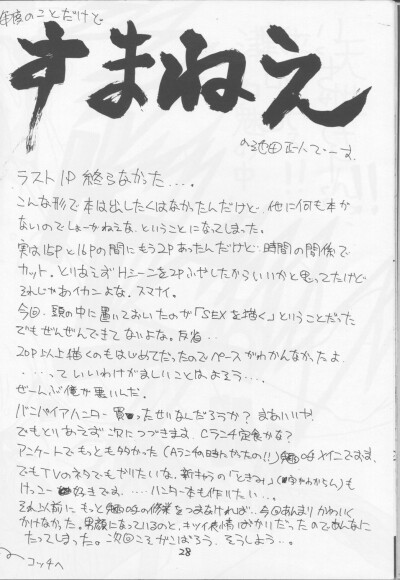 年度のことだけど
すまねえ
の池田正人でーす
ラスト1P 終らなかった...。
こんな形で本は出したくはなかったんだけど…他に何も本が
ないのでしょーがねえな、ということになってしまった。
実は15Pと16Pの間にもう2Pあったんだけど…時間の関係で
カット。とりあえずHシーンを2Pふやしたからいいかと思ってたけど
それじゃあイカンよな。スマナイ。
今回、頭の中に置いておいたのが「SEXを描く」ということだった
でもぜんぜんできてないよな。反省…
20P以上描くのもはじめてだったのでペースがわかんなかったよ
....っていいわけがましいことはよそう...。
ぜーんぶ俺が悪いんだ。
バンパイアハンター買ったせいなんだろうか? まあいいや
でもとりあえず次につづきます Cランチ定食かな?
アンケートでもっとも多かった(Aランチの時さんかたの!!) メインですます、
でもTVのネタでもやりたいな、新キャラの「ときみ」(字わからん)も
けっこー好きです....ハンター本も作りたい...。
それ以前にもっとの修業をつまなければ…今回あんまりかわいく
かけなかった。男顔になっているのと、キツイ表情ばかりだったのでめんなに
たってしまった。次回こそがんばろう、そうしよう..。
28
コッチへ